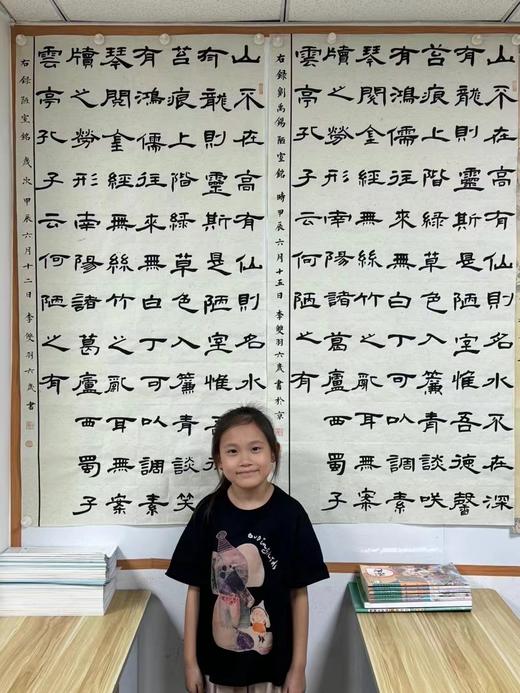 山不在高有仙則名水不在深
有龍則靈斯是陋室惟吾德馨
苔痕上階綠草色入簾青談咲
有鴻儒往來無白丁可以調素
琴閱金經無絲竹之亂耳無案
牘之勞形南陽諸葛廬西蜀子
雲亭孔子云何陋之有
右錄劉禹錫陋室銘 時甲辰六月十五日李雙羽六歲書於京
山不在高有仙則名水
有龍則靈斯是陋室惟
苔痕上階綠草色入簾青談笑
有鴻儒往來無白丁可以調素
琴閱金經無絲竹之亂耳無案
牘之勞形南陽諸葛廬西蜀子
雲亭孔子云何陋之有
右錄陋室銘 歲次甲辰六月十二日 李雙羽六歲書